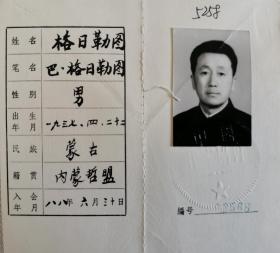 姓名 格日勒图
笔名 巴·格日勒图
性别 男
出生年月 一九三七、四、二十二
民族 蒙古
籍贯 内蒙哲盟
入会年月 八八年六月三十日
5258
编号